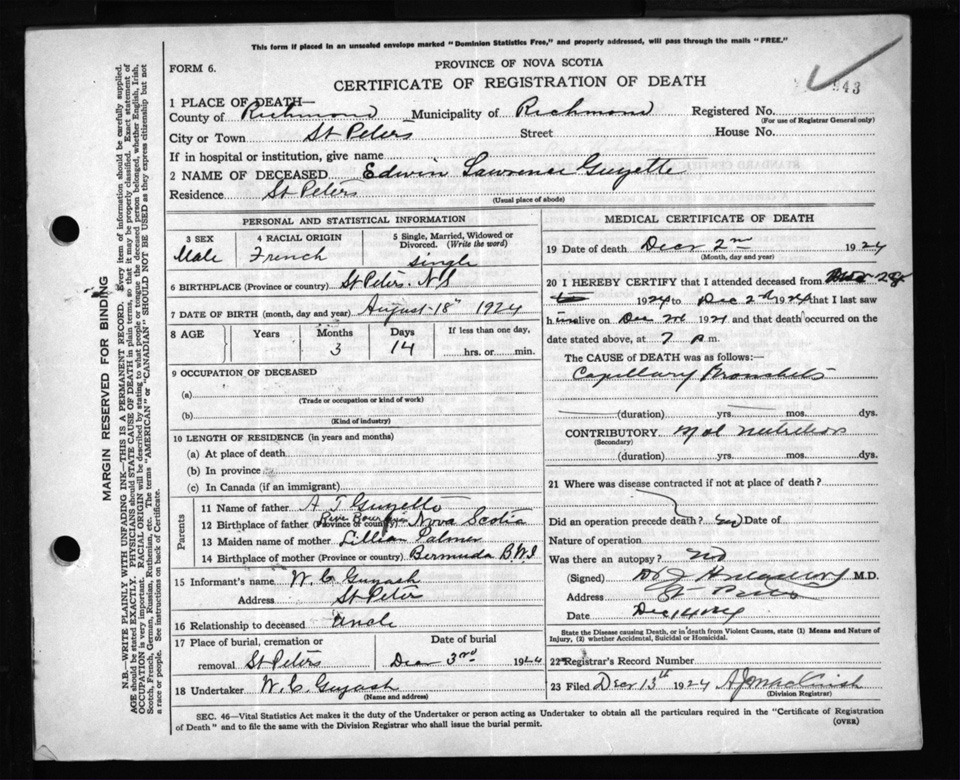 This form if placed in an unsealed envelope marked "Dominion Statistics Free," and properly addressed, will pass through the mails "FREE."
FORM 6.
PROVINCE OF NOVA SCOTIA
CERTIFICATE OF REGISTRATION OF DEATH
943
1 PLACE OF DEATH—
County of Richmond Municipality of Richmond Registered No.
(For use of Registrar General only)
City or Town St Peters Street House No.
If in hospital or institution, give name
2 NAME OF DECEASED Edwin Lawrence Guyette
Residence St Peters
(Usual place of abode)
PERSONAL AND STATISTICAL INFORMATION
3 SEX
Male
4 RACIAL ORIGIN
French
5 Single, Married, Widowed or Divorced. (Write the word)
Single
6 BIRTHPLACE (Province or country) St Peters. N.S
7 DATE OF BIRTH (month, day and year) August 18th 1924
8 AGE Years Months Days If less than one day,
3 14 hrs. or min.
9 OCCUPATION OF DECEASED
(a)
(Trade or occupation or kind of work)
(b)
(Kind of industry)
10 LENGTH OF RESIDENCE (in years and months)
(a) At place of death
(b) In province
(c) In Canada (if an immigrant)
Parents
11 Name of father A T Guyette
12 Birthplace of father (Province or country) River Bourgeois Nova Scotia
13 Maiden name of mother Lillian Palmer
14 Birthplace of mother (Province or country) Bermuda B.W.I
15 Informant's name W. C Guyash
Address St Peter
16 Relationship to deceased Uncle
17 Place of burial, cremation or removal St Peters
Date of burial Decr 3rd 1924
18 Undertaker W. C Guyash
(Name and address)
MEDICAL CERTIFICATE OF DEATH
19 Date of death Decr 2nd 1924
(Month, day and year)
20 I HEREBY CERTIFY that I attended deceased from 28
1924 to Dec 2nd 1924 that I last saw
him alive on Dec 2nd 1924 and that death occurred on the
date stated above, at 7 P.m.
The CAUSE OF DEATH was as follows:—
Capillary Bronchitis
(duration) yrs. mos. dys.
CONTRIBUTORY Mal nutrition
(Secondary)
(duration) yrs. mos. dys.
21 Where was disease contracted if not at place of death?
Did an operation precede death? Date of
Nature of operation
Was there an autopsy? no
(Signed) M.D.
Address St Peters
Date Dec
State the Disease causing Death, or in death from Violent Causes, state (1) Means and Nature of Injury, (2) whether Accidental, Suicidal or Homicidal.
22 Registrar's Record Number
23 Filed Decr 13th 1924
(Division Registrar)
SEC. 46—Vital Statistics Act makes it the duty of the Undertaker or person acting as Undertaker to obtain all the particulars required in the "Certificate of Registration
of Death" and to file the same with the Division Registrar who shall issue the burial permit.
(OVER)
MARGIN RESERVED FOR BINDING
N.B.—WRITE PLAINLY WITH UNFADING INK—THIS IS A PERMANENT RECORD. Every item of information should be carefully supplied.
AGE should be stated EXACTLY. PHYSICIANS should STATE CAUSE OF DEATH in plain terms, so that it may be properly classified. Exact statement of
OCCUPATION is very important. RACIAL ORIGIN will be described by stating to what people or tongue the deceased person belonged, whether English, Irish,
Scotch, French, German, Russian, Ruthenian, etc. The terms "AMERICAN" or "CANADIAN" SHOULD NOT BE USED as they express citizenship but not
a race or people. See instructions on back of Certificate.